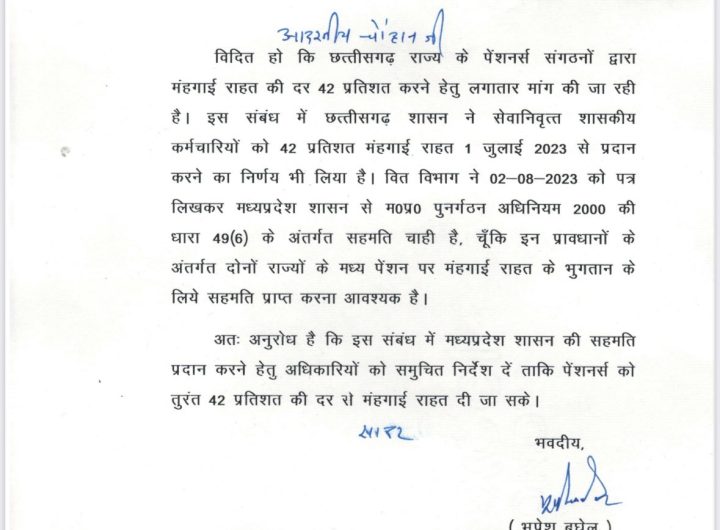 आदरणीय चौहान जी
विदित हो कि छत्तीसगढ़ राज्य के पेंशनर्स संगठनों द्वारा
मंहगाई राहत की दर 42 प्रतिशत करने हेतु लगातार मांग की जा रही
है। इस संबंध में छत्तीसगढ़ शासन ने सेवानिवृत्त शासकीय
कर्मचारियों को 42 प्रतिशत मंहगाई राहत 1 जुलाई 2023 से प्रदान
करने का निर्णय भी लिया है। वित विभाग ने 02-08-2023 को पत्र
लिखकर मध्यप्रदेश शासन से म0प्र0 पुनर्गठन अधिनियम 2000 की
धारा 49(6) के अंतर्गत सहमति चाही है, चूँकि इन प्रावधानों के
अंतर्गत दोनों राज्यों के मध्य पेंशन पर मंहगाई राहत के भुगतान के
लिये सहमति प्राप्त करना आवश्यक है।
अतः अनुरोध है कि इस संबंध में मध्यप्रदेश शासन की सहमति
प्रदान करने हेतु अधिकारियों को समुचित निर्देश दें ताकि पेंशनर्स को
तुरंत 42 प्रतिशत की दर से मंहगाई राहत दी जा सके।
सादर
भवदीय,
( भूपेश बघेल )